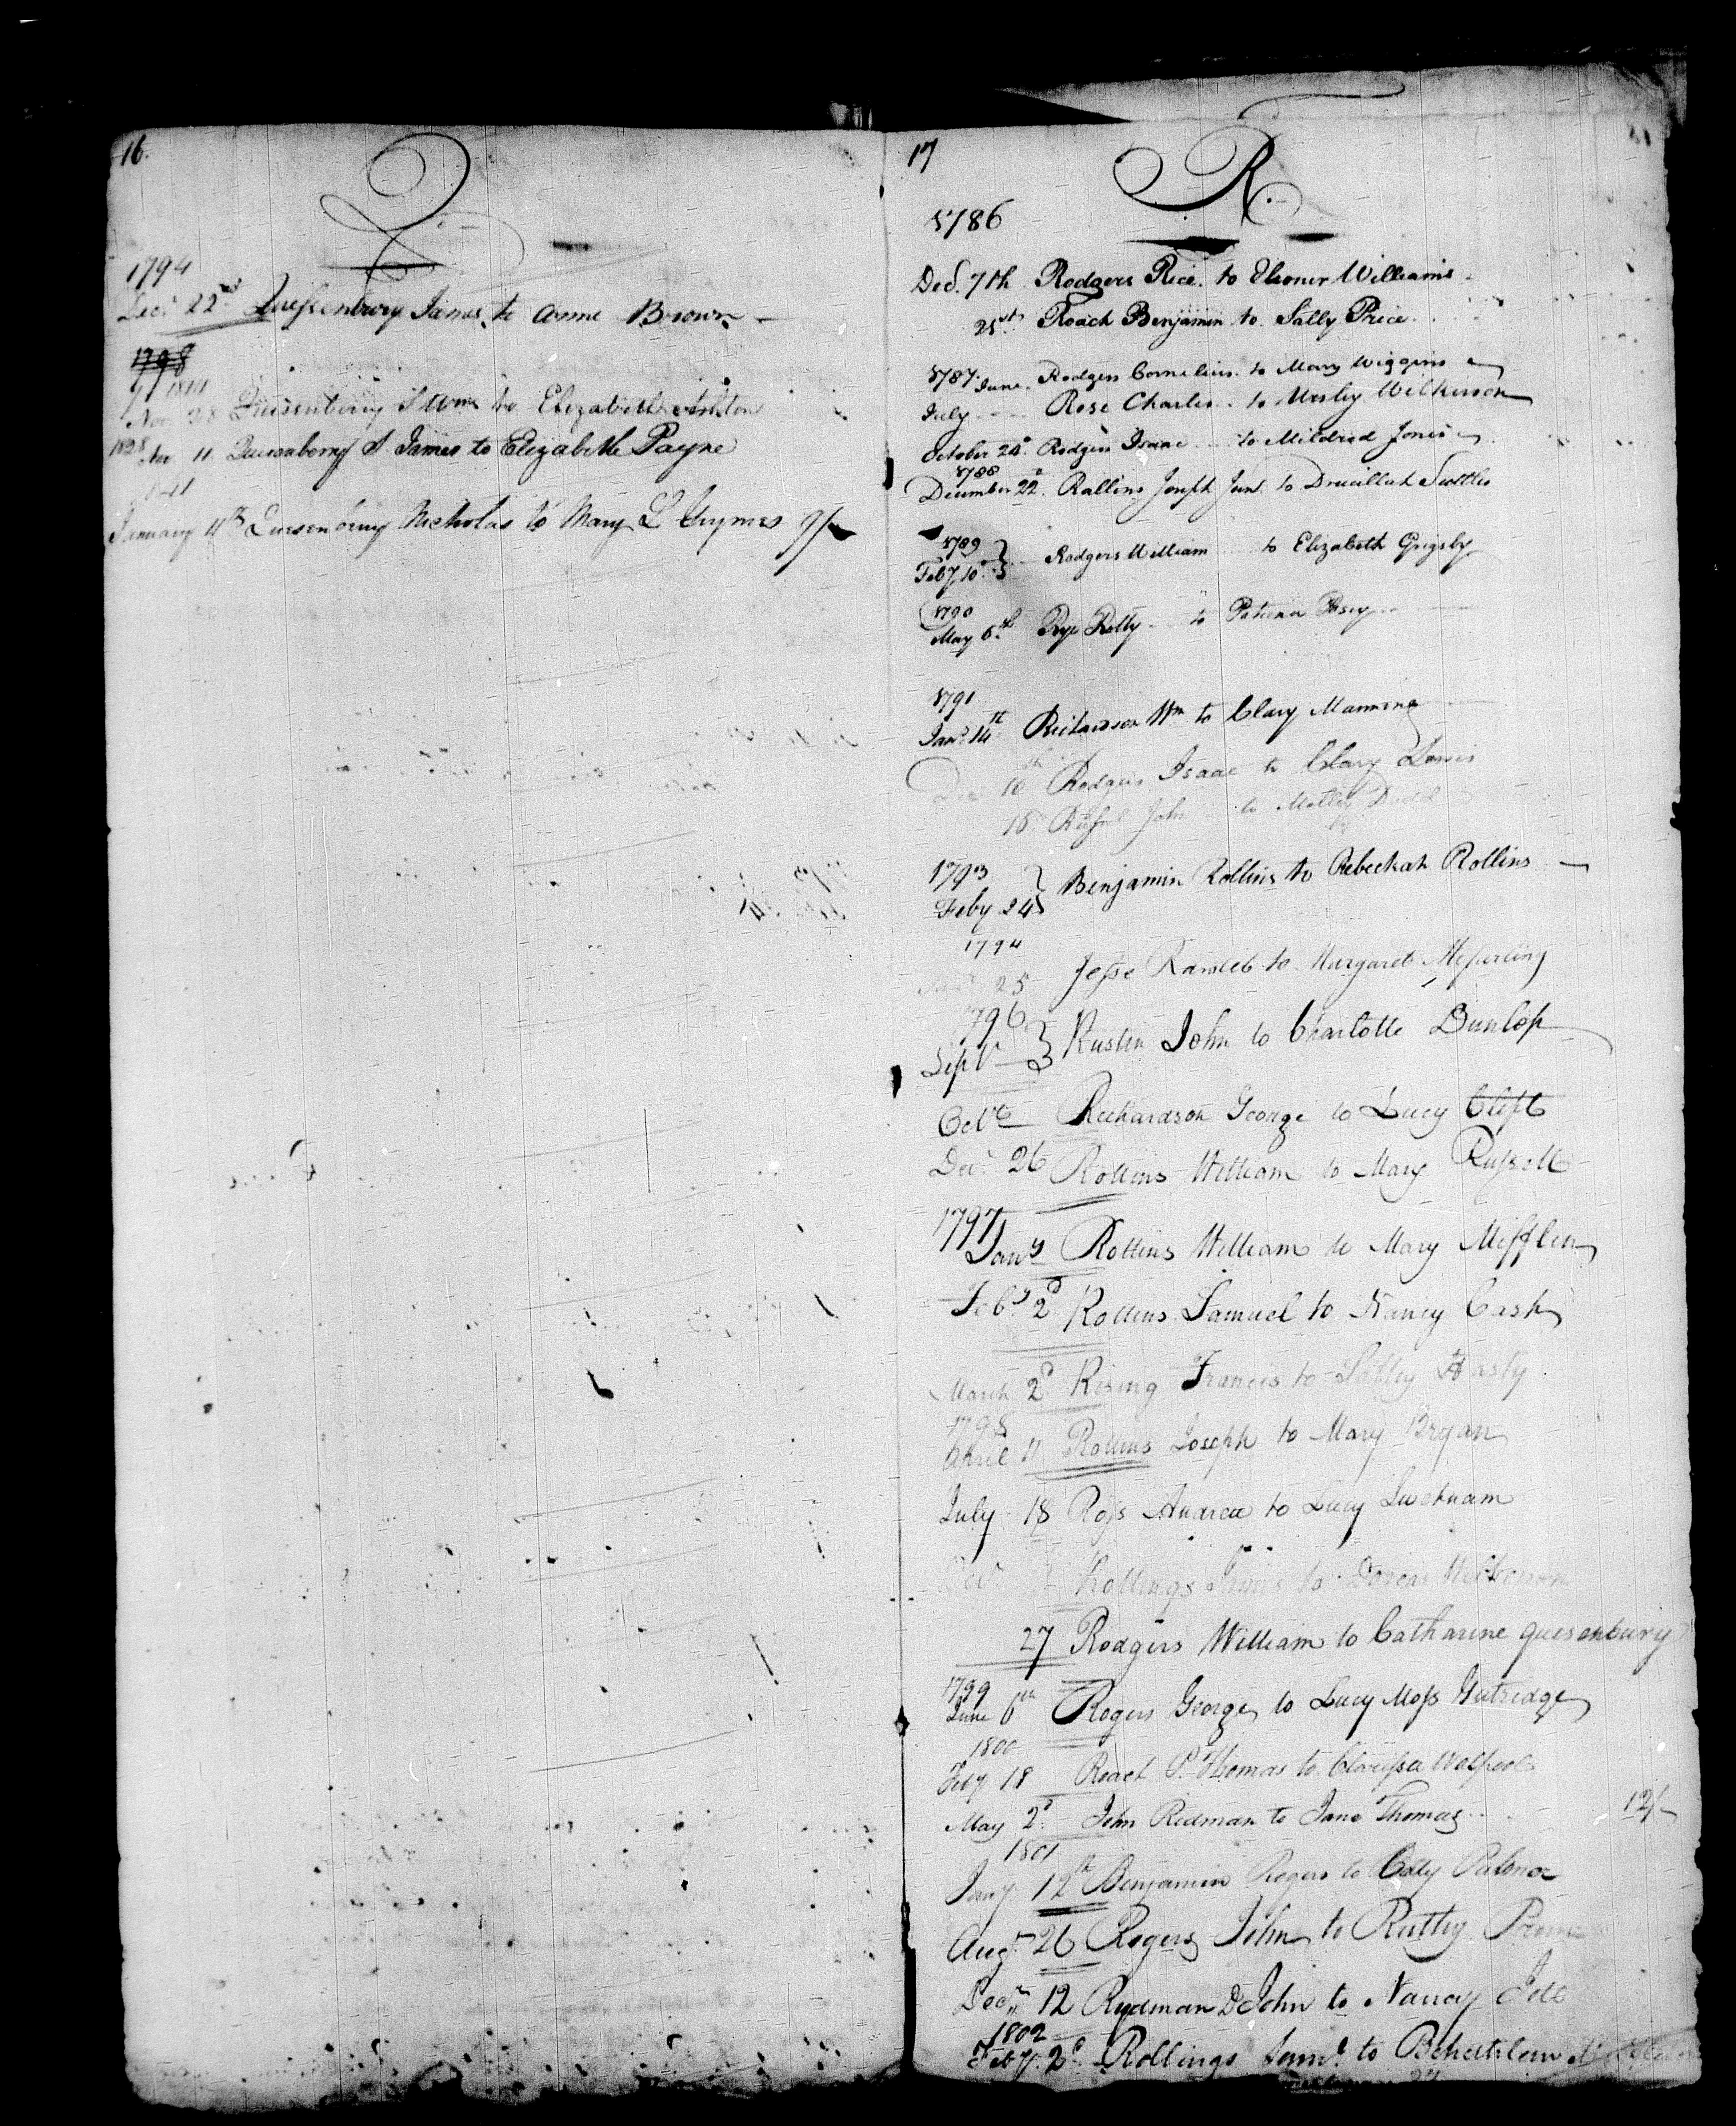 16.
Q
1794
Decr 22nd Quesenbury James to Anne Brown
1798
1811
Nov 28 Quisenberry to Elizabeth Ashton
1828 Nov 11 Quesenberry S James to Elizabeth Payne
1841
January 4th Quesenbury Nicholas to Mary L Grymes
17
R.
1786
Decr. 7th Rodgers Rice to Eleoner Williams
25th Roach Benjamin to Sally Price
1787. June Rodgers Cornelius to Mary Wiggins
July Rose Charles to Wilkerson
October 24 Rodgers Isaac to Mildred Jones
1788
December 22d. Rallins Joseph Junr. to Drucillah Suttles
1789
Feby 10 Rodgers William to Elizabeth Grigsby
1790
May 6th to Posey
1791
Jany. 14th Richardson Wm to Clary Manning
Dec 16th Rodgers Isaac to Clary Lewis
18 John to Dodd
1793
Feby 24 Benjamin Rollins to Rebeckah Rollins
1794
25 Jesse to Margaret
1796
Septr Rustin John to Charlotte Dunlop
Octr Richardson George to Lucy Clift
Decr 26 Rollins William to Mary Russell
1797
Jany Rollins William to Mary Mifflin
Feby 2d Rollins Samuel to Nancy Cash
March 2d Rising Francis to Salley Hasty
1798
April 11 Rollins Joseph to Mary Bryan
July 18 Ross Andrew to Lucy
Rollings James to Dorcas
27 Rodgers William to Catharine quesenbury
1799
June 6th Rogers George to Lucy Moss Gutridge
1800
Feby 18 Roach P. Thomas to Clarissa Walpole
May 2d. John Redman to Jane Thomas 12/-
1801
Jany 12th Benjamin Rogers to
Augt 26 Rogers John to
Decr 12 Rydman D John to Nancy
1802
Feby. 2d. Rollings Saml. to Behethlem